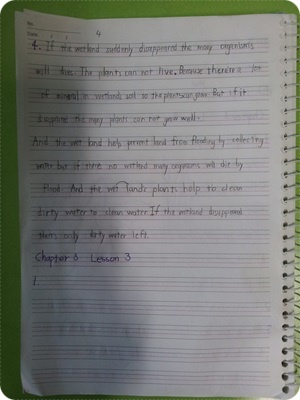 No.
Date
4
4. If the wetland suddenly disappeared the many organisms
will dies. The plants can not live. Because there're a lot
of mineral in wetlands soil so the plants can grow. But if it
disappeared the many plants can not grow well.
And the wet land help prevent land from flooding by collecting
water but if there no wetland many organisms will die by
flood. And the wet lands plants help to clean
dirty water to clean water. If the wetland disappeared
there only dirty water left.
Chapter 3 Lesson 3
1.